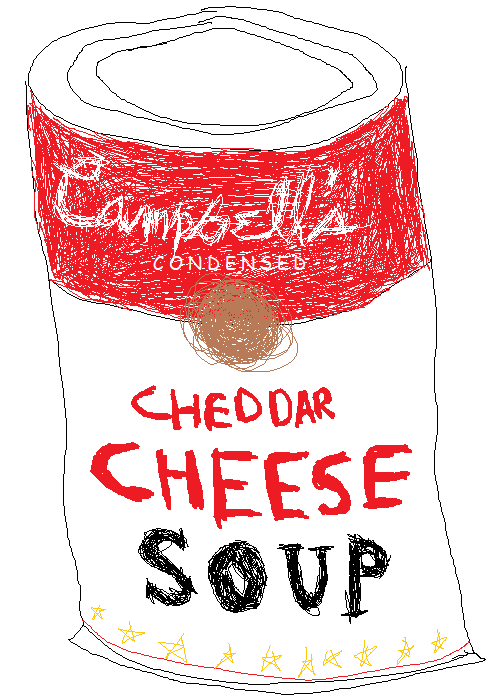 Campbell's
CONDENSED
CHEDDAR
CHEESE
SOUP